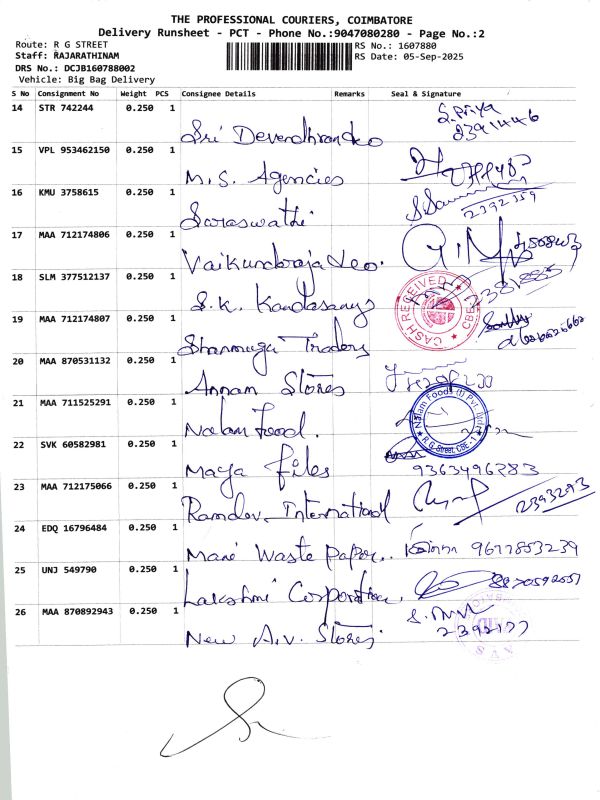 THE PROFESSIONAL COURIERS, COIMBATORE
Delivery Runsheet - PCT - Phone No.:9047080280 - Page No.:2
Route: R G STREET
RS No.: 1607880
Staff: RAJARATHINAM
RS Date: 05-Sep-2025
DRS No.: DCJB160788002
Vehicle: Big Bag Delivery
S No Consignment No Weight PCS Consignee Details Remarks Seal & Signature
14 STR 742244 0.250 1
Sri Devendhran & co
S. Priya
2391446
15 VPL 953462150 0.250 1
M.S. Agencies
16 KMU 3758615 0.250 1
Saraswathi
2392359
17 MAA 712174806 0.250 1
Vaikundaraja & co.
18 SLM 377512137 0.250 1
S.K. Kandasamy
2381885
CASH RECEIVED
CBE
19 MAA 712174807 0.250 1
Shanmuga Traders
20 MAA 870531132 0.250 1
Annam Stores
21 MAA 711525291 0.250 1
Nalam Food.
Nalam Foods (I) Pvt. Ltd
R.G. Street, CBE - 1
22 SVK 60582981 0.250 1
Maya Files
9363496283
23 MAA 712175066 0.250 1
Ramdev International
2393293
24 EDQ 16796484 0.250 1
Mani Waste Paper..
9677853239
25 UNJ 549790 0.250 1
Lakshmi Corporation.
26 MAA 870892943 0.250 1
New A.V. Stores
2392177